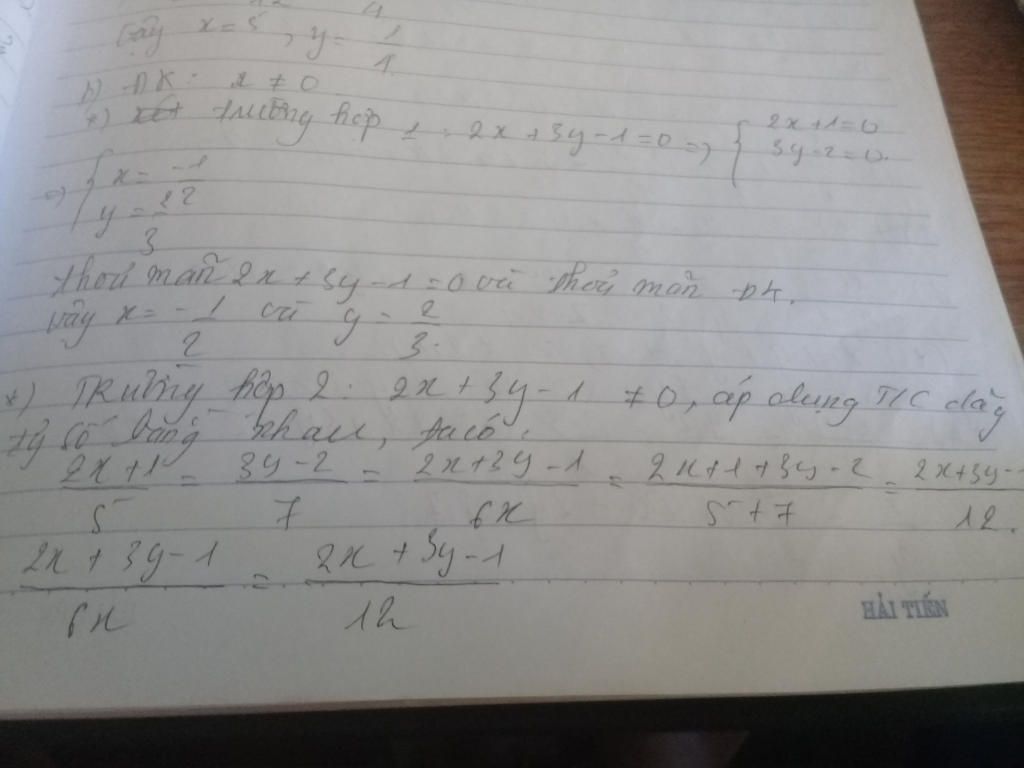 12 4
Vậy x = 5, y = 1/1
b) ĐK: x ≠ 0
*) trường hợp 1: 2x + 3y - 1 = 0 => { 2x + 1 = 0
3y - 2 = 0.
=> { x = -1/2
y = 2/3
thoả mãn 2x + 3y - 1 = 0 và thoả mãn ĐK.
Vậy x = -1/2 và y = 2/3.
*) Trường hợp 2: 2x + 3y - 1 ≠ 0, áp dụng T/C dãy
tỷ số bằng nhau, ta có:
(2x + 1)/5 = (3y - 2)/7 = (2x + 3y - 1)/6x = (2x + 1 + 3y - 2)/(5 + 7) = (2x + 3y - 1)/12.
(2x + 3y - 1)/6x = (2x + 3y - 1)/12
HẢI TIẾN